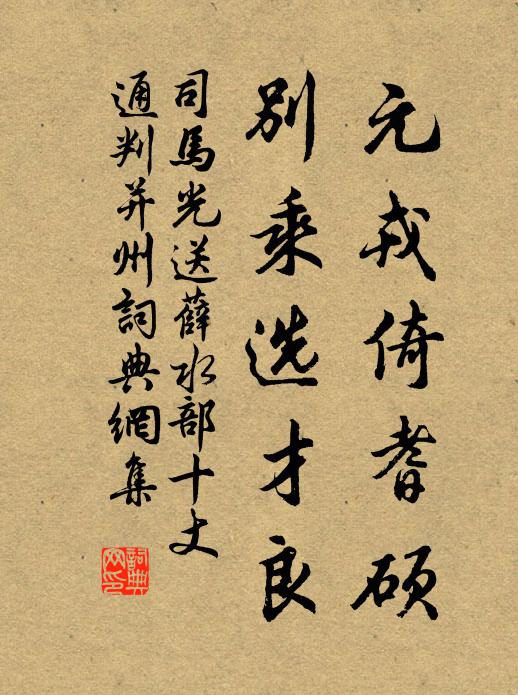 元戎倚耆硕
別乘选才良
司馬光送薛水部十丈
通判并州詞典網集
詞典
网印